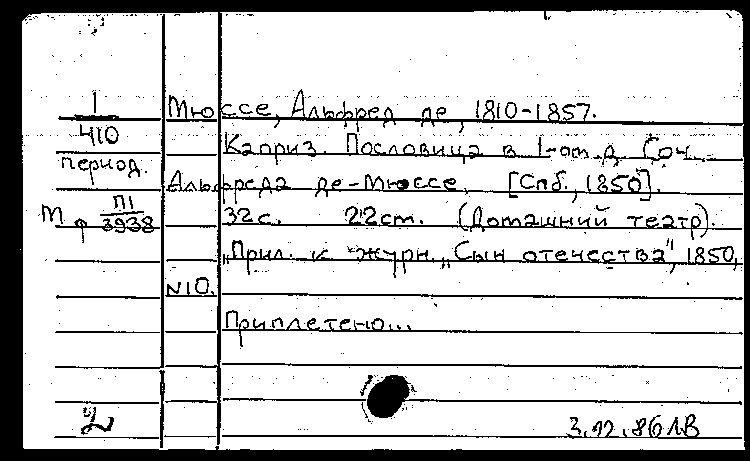 1
410
период.
Мф П1
3938
Мюссе, Альфред де, 1810-1857.
Каприз. Пословица в 1-ом д. Соч.
Альфреда де-Мюссе. [Спб., 1850].
32с. 22см. (Домашний театр).
"Прил. к журн. „Сын отечества", 1850,
N10.
Приплетено...
3.12.86 ЛВ